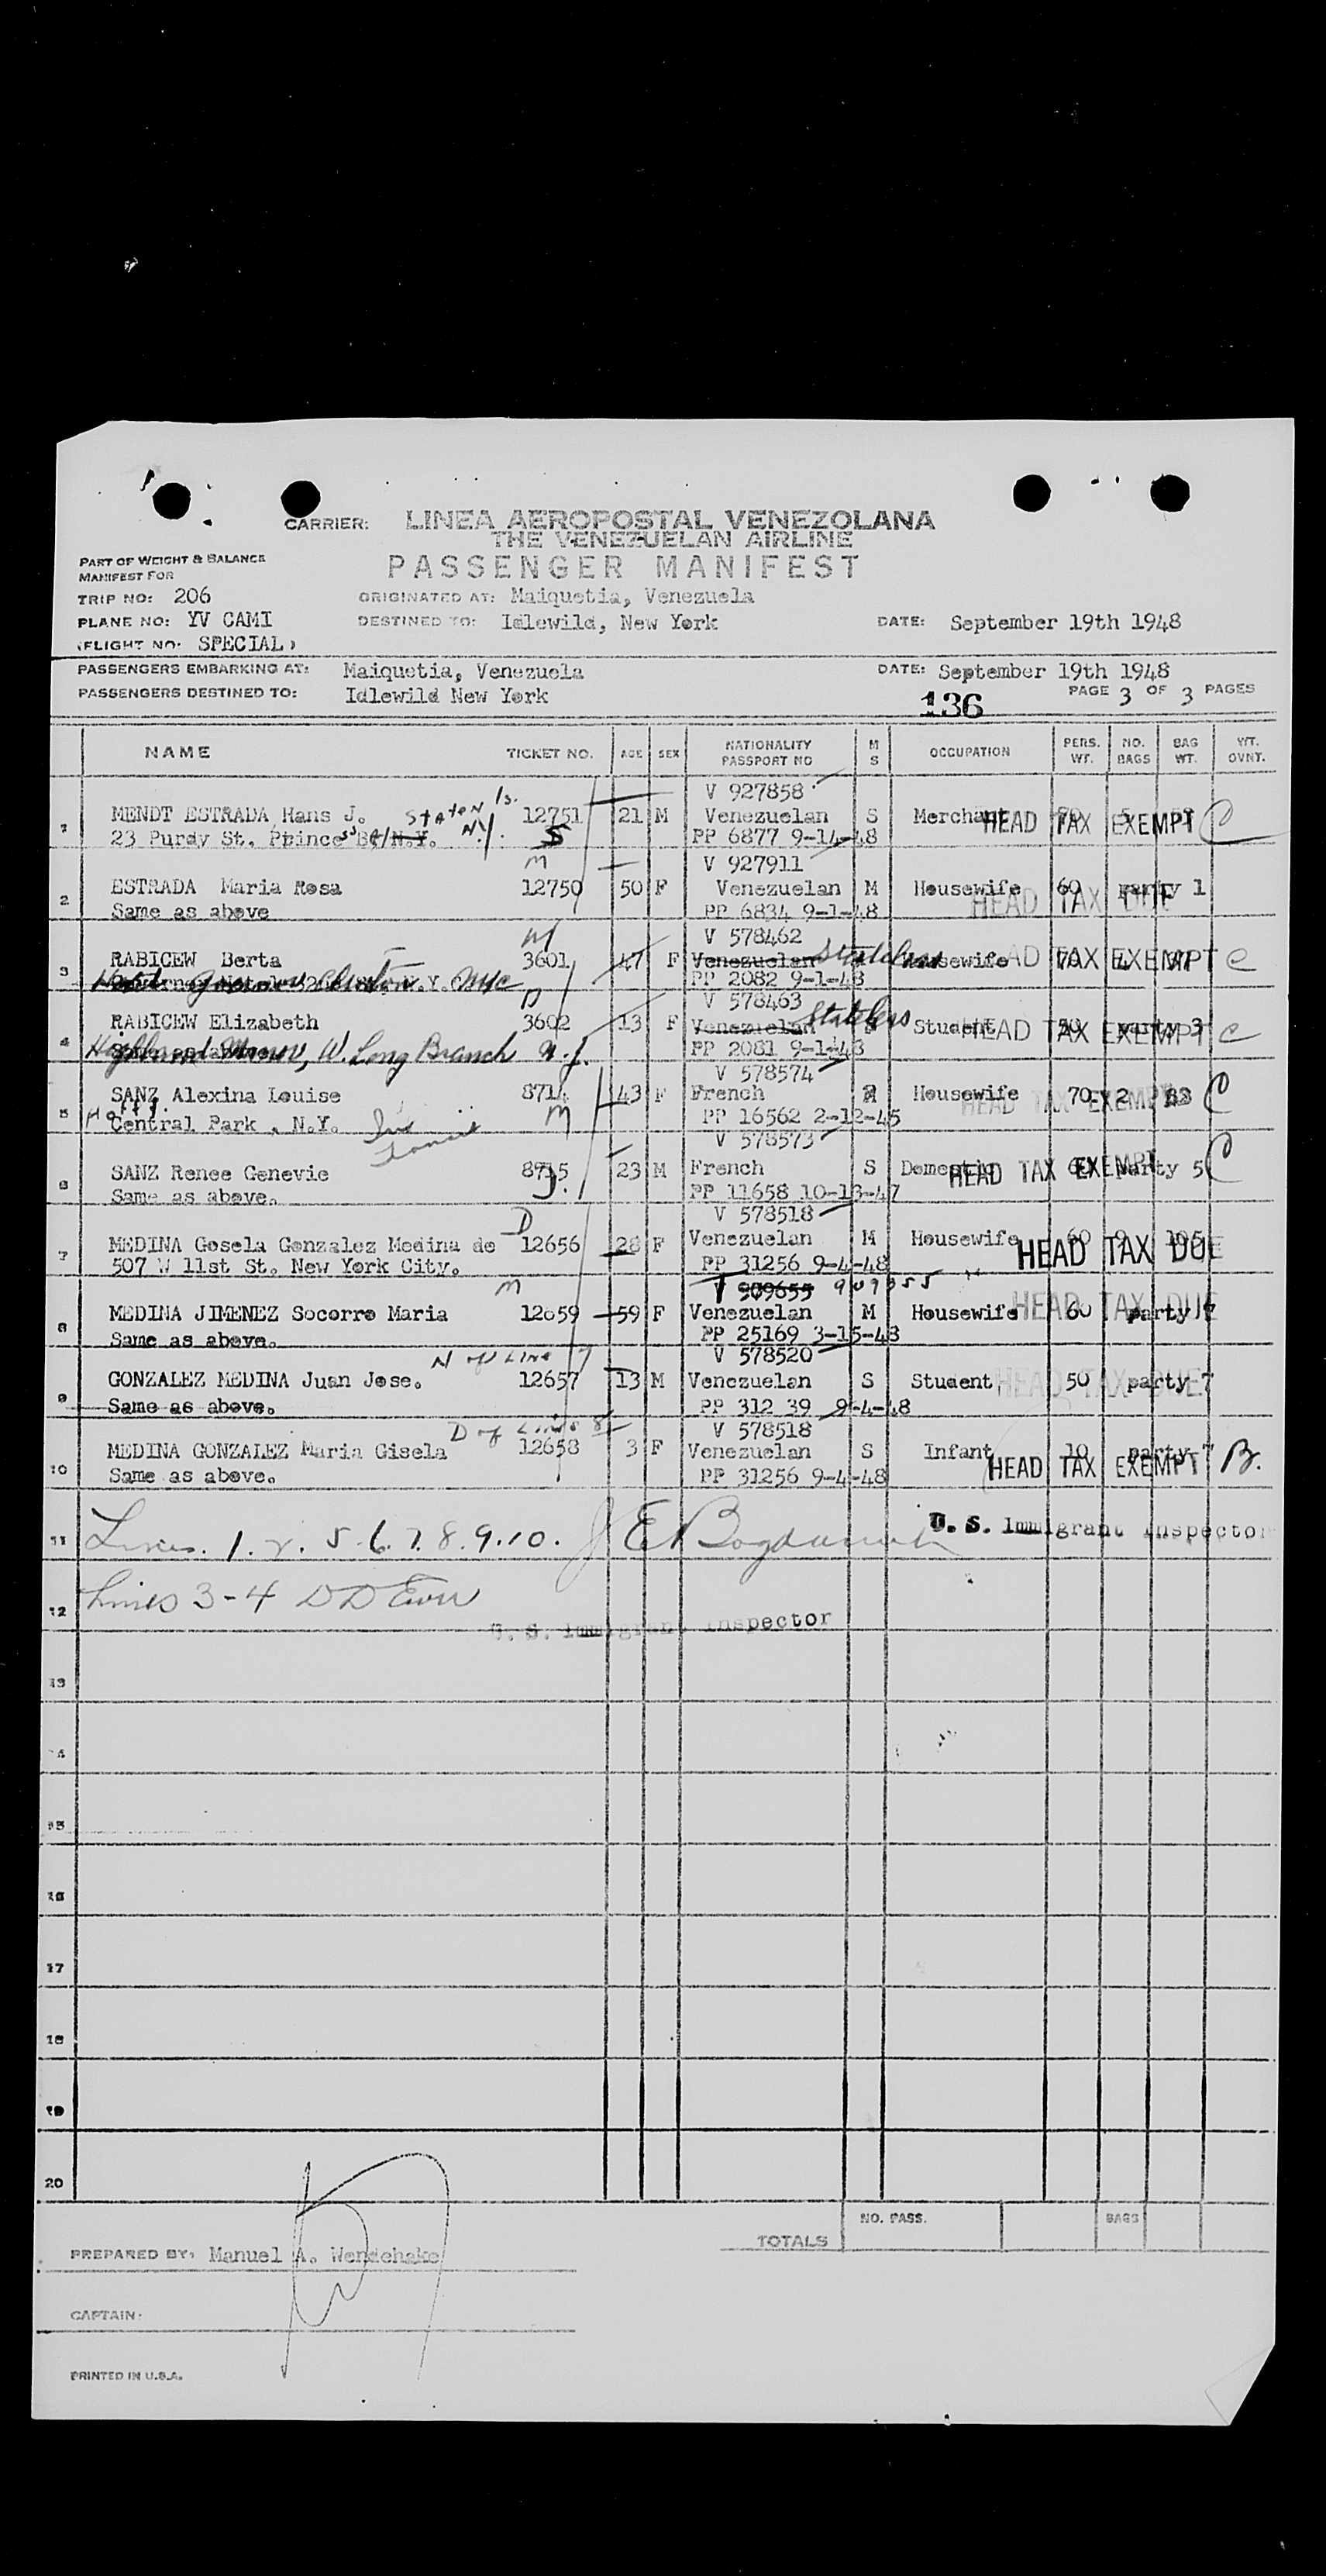 CARRIER: LINEA AEROPOSTAL VENEZOLANA
THE VENEZUELAN AIRLINE
PART OF WEIGHT & BALANCE
MANIFEST FOR
PASSENGER MANIFEST
TRIP NO: 206 ORIGINATED AT: Maiquetia, Venezuela
PLANE NO: YV CAMI DESTINED TO: Idlewild, New York DATE: September 19th 1948
(FLIGHT NO. SPECIAL)
PASSENGERS EMBARKING AT: Maiquetia, Venezuela DATE: September 19th 1948
PASSENGERS DESTINED TO: Idlewild New York 136 PAGE 3 OF 3 PAGES
NAME TICKET NO. AGE SEX NATIONALITY PASSPORT NO M S OCCUPATION PERS. WT. NO. BAGS BAG WT. WT. OVNT.
V 927858
1 MENDT ESTRADA Hans J. Staten Is. 12751 21 M Venezuelan S Merchant HEAD TAX EXEMPT C
23 Purdy St. Princess B4/N.Y. N.Y. S PP 6877 9-14-48
M V 927911
2 ESTRADA Maria Rosa 12750 50 F Venezuelan M Housewife 60 party 1
Same as above PP 6834 9-1-48 HEAD TAX DUE
M V 578462
3 RABICEW Berta 3601 47 F Venezuelan Stateless HEAD TAX EXEMPT C
N.Y. NYC PP 2082 9-1-48
D V 578463
4 RABICEW Elizabeth 3602 13 F Venezuelan Stateless Student HEAD TAX EXEMPT party 3 C
Highland Manor, W. Long Branch N.J. PP 2081 9-1-48
V 578574
5 SANZ Alexina Louise 8714 43 F French Housewife 70 2 HEAD TAX EXEMPT C
Central Park , N.Y. In Transit M PP 16562 2-12-45
V 578573
6 SANZ Renee Genevie 8715 23 M French S Domestic HEAD TAX EXEMPT party 5 C
Same as above. PP 11658 10-13-47
D V 578518
7 MEDINA Gosela Gonzalez Medina de 12656 28 F Venezuelan M Housewife 60 HEAD TAX DUE
507 W 11st St. New York City. PP 31256 9-4-48
M V 909655 909355
8 MEDINA JIMENEZ Socorro Maria 12659 59 F Venezuelan M Housewife HEAD TAX DUE 60 party 7
Same as above. PP 25169 3-15-48
N of Line 7 V 578520
9 GONZALEZ MEDINA Juan Jose. 12657 13 M Venezuelan S Student HEAD TAX DUE 50 party 7
Same as above. PP 312 39 9-4-48
D of Line 8 V 578518
10 MEDINA GONZALEZ Maria Gisela 12658 3 F Venezuelan S Infant 10 party 7 B.
Same as above. PP 31256 9-4-48 HEAD TAX EXEMPT
11 Lines. 1. 2. 5. 6. 7. 8. 9. 10. U. S. Immigrant Inspector
12 Lines 3-4
U. S. Immigrant Inspector
13
14
15
16
17
18
19
20
NO. PASS. BAGS
TOTALS
PREPARED BY: Manuel A. Wendehake
CAPTAIN:
PRINTED IN U.S.A.